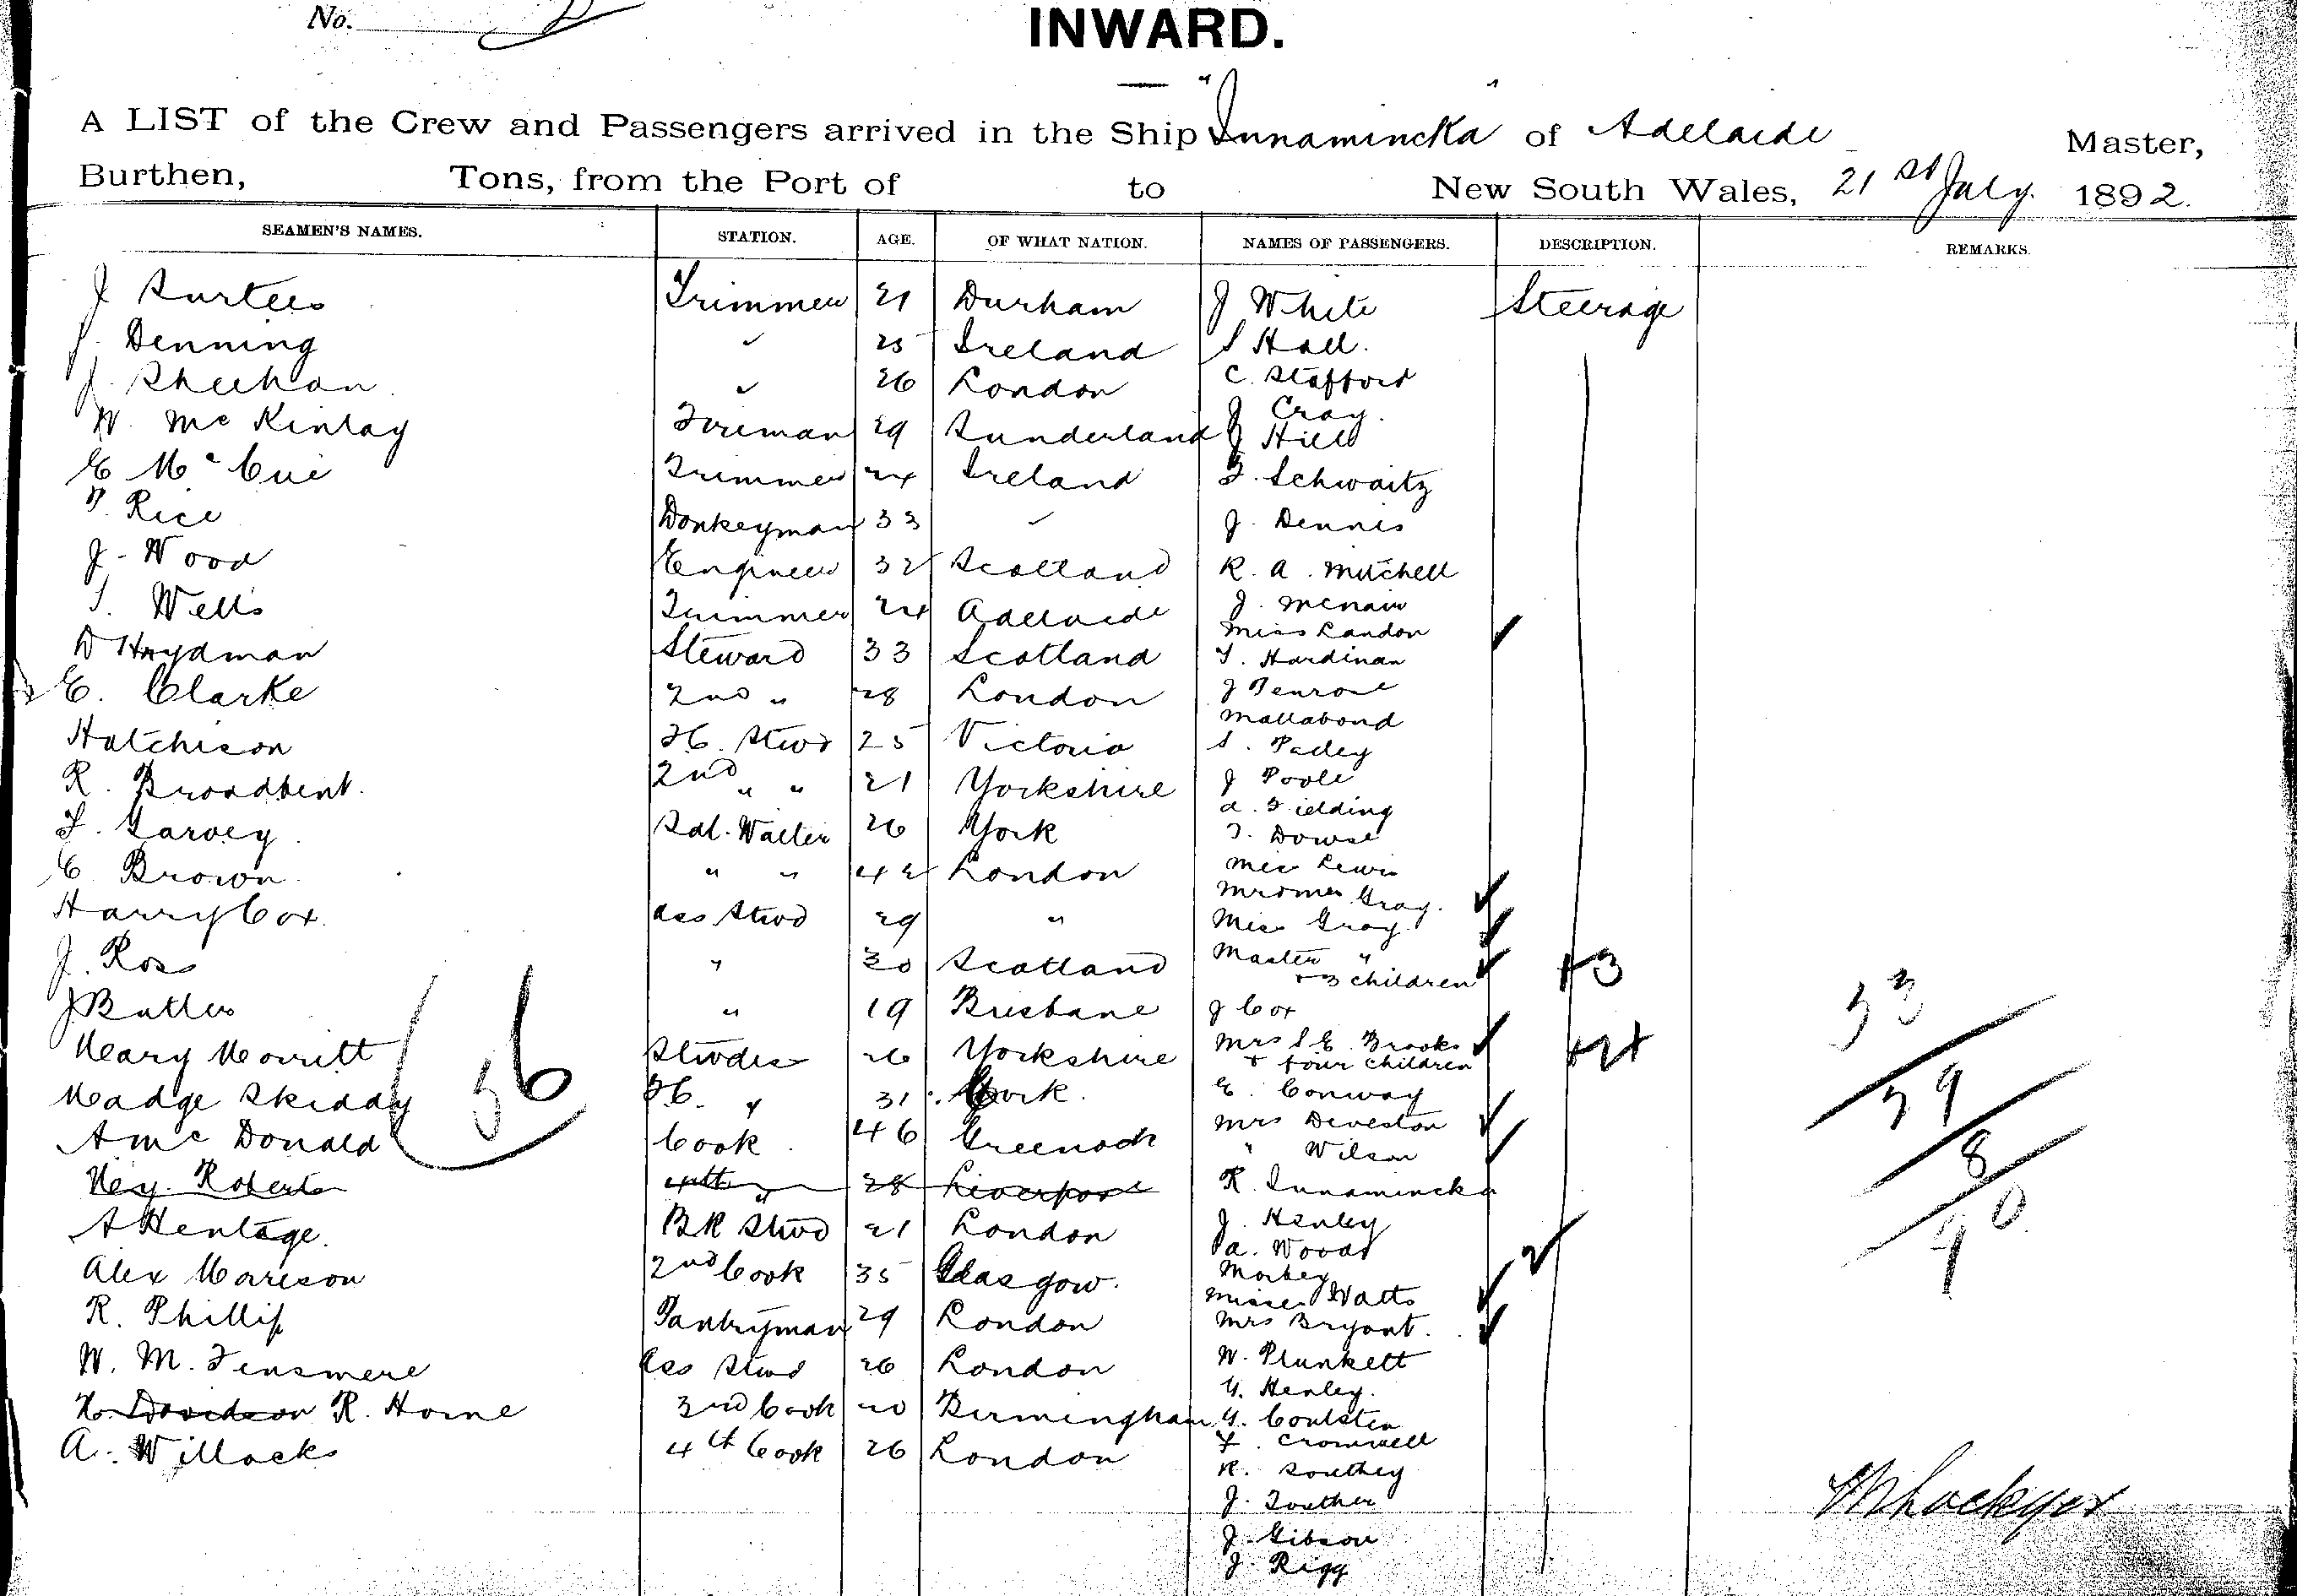 No.
INWARD.
A LIST of the Crew and Passengers arrived in the Ship "Innamincka" of Adelaide Master,
Burthen, Tons, from the Port of to New South Wales, 21st July. 1892.
SEAMEN'S NAMES. STATION. AGE. OF WHAT NATION. NAMES OF PASSENGERS. DESCRIPTION. REMARKS.
J Surtees Trimmer 21 Durham J White Steerage
J. Denning " 25 Ireland S Hall.
J. Sheehan " 26 London C. Stafford
J Cray.
W. McKinlay Fireman 29 Sunderland J Hill
E McCue Trimmer 24 Ireland F. Schwaitz
T. Rice Donkeyman 33 " J. Dennis
J. Wood Engineer 32 Scotland R. A. Mitchell
J. McNair
S. Wells Trimmer 24 Adelaide Miss Landon
D Haydman Steward 33 Scotland T. Hardinan
E. Clarke 2nd " 28 London J Penrose
Mallabond
Hutchison FC. Stwd 25 Victoria S. Padey
R. Broadbent. 2nd " " 21 Yorkshire J Poole
A. Fielding
F. Garvey. Sal. Waiter 26 York T. Dowse
C. Brown. " " 42 London Miss Lewis
Mr & Mrs Gray.
Harry Cox. Ass Stwd 29 " Miss Gray.
J. Ross " 30 Scotland Master "
+ 3 children +3
J Butler " 19 Brisbane J Cox
Mary Merritt Stwdss 26 Yorkshire Mrs S E. Brooks
+ four children +4
Madge Skiddy FC. " 31 Cork. E. Conway
A McDonald Cook. 46 Greenock Mrs Deveston
" Wilson
56
53
59
8
Hey. Roberts 28 Liverpool R. Innamincka
A Hentage. BR Stwd 21 London J. Henley
A. Woods
Alex Morison 2nd Cook 35 Glasgow. Morbey
Misses Watts 2
R. Phillip Pantryman 29 London Mrs Bryant.
W. M. Finsmere Ass Stwd 26 London W. Plunkett
G. Henley.
H. Davidson R. Horne 3rd Cook 20 Birmingham G. Coulsten
A. Willocks 4th Cook 26 London F. Cromwell
R. Southey
J. Souther
J. Gibson
J. Rigg